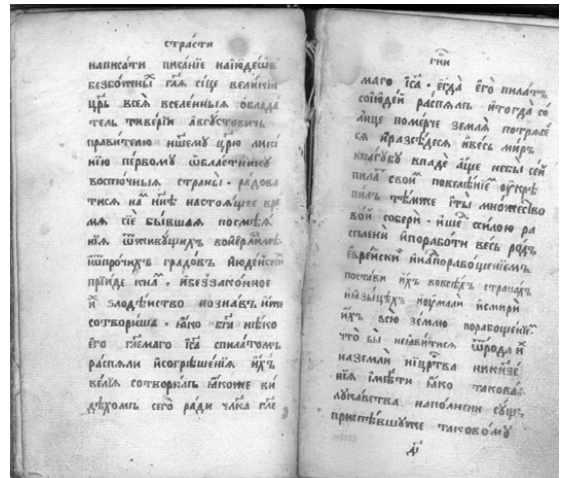 стра́сти
написати писанїе наїюдеѡвъ
безбожны́ гл҃я си́це великїи
цр҃ь всея̀ вселе́нныѧ облада
тель тиве́рїи а́вгꙋстовичь
прави́телю
нїю пе́рвомꙋ ѡ҆бластникꙋ
восто́чныѧ страны̀ . ра́дова
тися на нн҃ѣ настоѧ́щее вре
мѧ сїѐ бы́вшаѧ
ѿживꙋщихъ
ѿпро́чихъ градовъ їюде́йски
прїи́де ибеззаконное
и злодѣ́иство позна́въ
сотвориша . ꙗ҆́ко бг҃а
его гл҃емаго їс҃а спила́томъ
распѧли исогрѣше́нїѧ и҆́хъ
ве́лїѧ сотвори́шѧ ꙗ҆́коже ви
дѣхомъ сего̀ ра́ди чл҃ка гл҃е
гн҃и
маго їс҃а . е҆гда̀ е҆го̀ пила́тъ
соїюде́й распѧ́лъ итогда̀ со́
лнце поме́рче землѧ̀ потрѧсе́
сѧ ираз̾сѣ́десѧ иве́сь ми́ръ
впаде а҆́ще небы̀ се́й
пила свои повелѣ́нїе ᲂу҆крѣ
пилъ тѣ́мже і҆ты̀ мно́жество
во́й соберѝ . си́лою ра
иꙗ҆рабо́ти ве́сь ро́дъ
е҆вре́йски ипорабоще́нїемъ
поста́ви и҆́хъ вовсѣ́хъ страна́хъ
иꙗ҆зы́цѣхъ исмирѝ
и҆́хъ всю̀ зе́млю порабоще́нїе
что̀ бы ненави́тисѧ ѿро́да и҆́
назе́мли ницр҃тва
нїѧ имѣ́ти ꙗ҆́ко такова́ѧ
лꙋка́вства напо́лнени сꙋще
приспѣ́вшꙋже тако́вомꙋ
д҃і